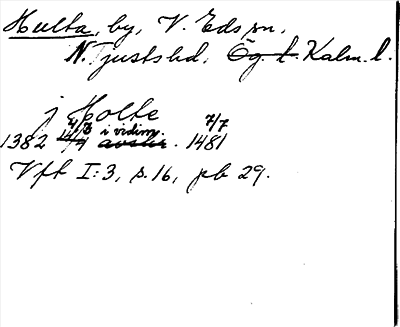 Hulta, by, V. Eds sn,
N. Tjusts hd, Ög. l. Kalm. l.
j Holte
1382 4/3 i vidim. 7/7 1481
Vft I:3, s. 16, pb 29.